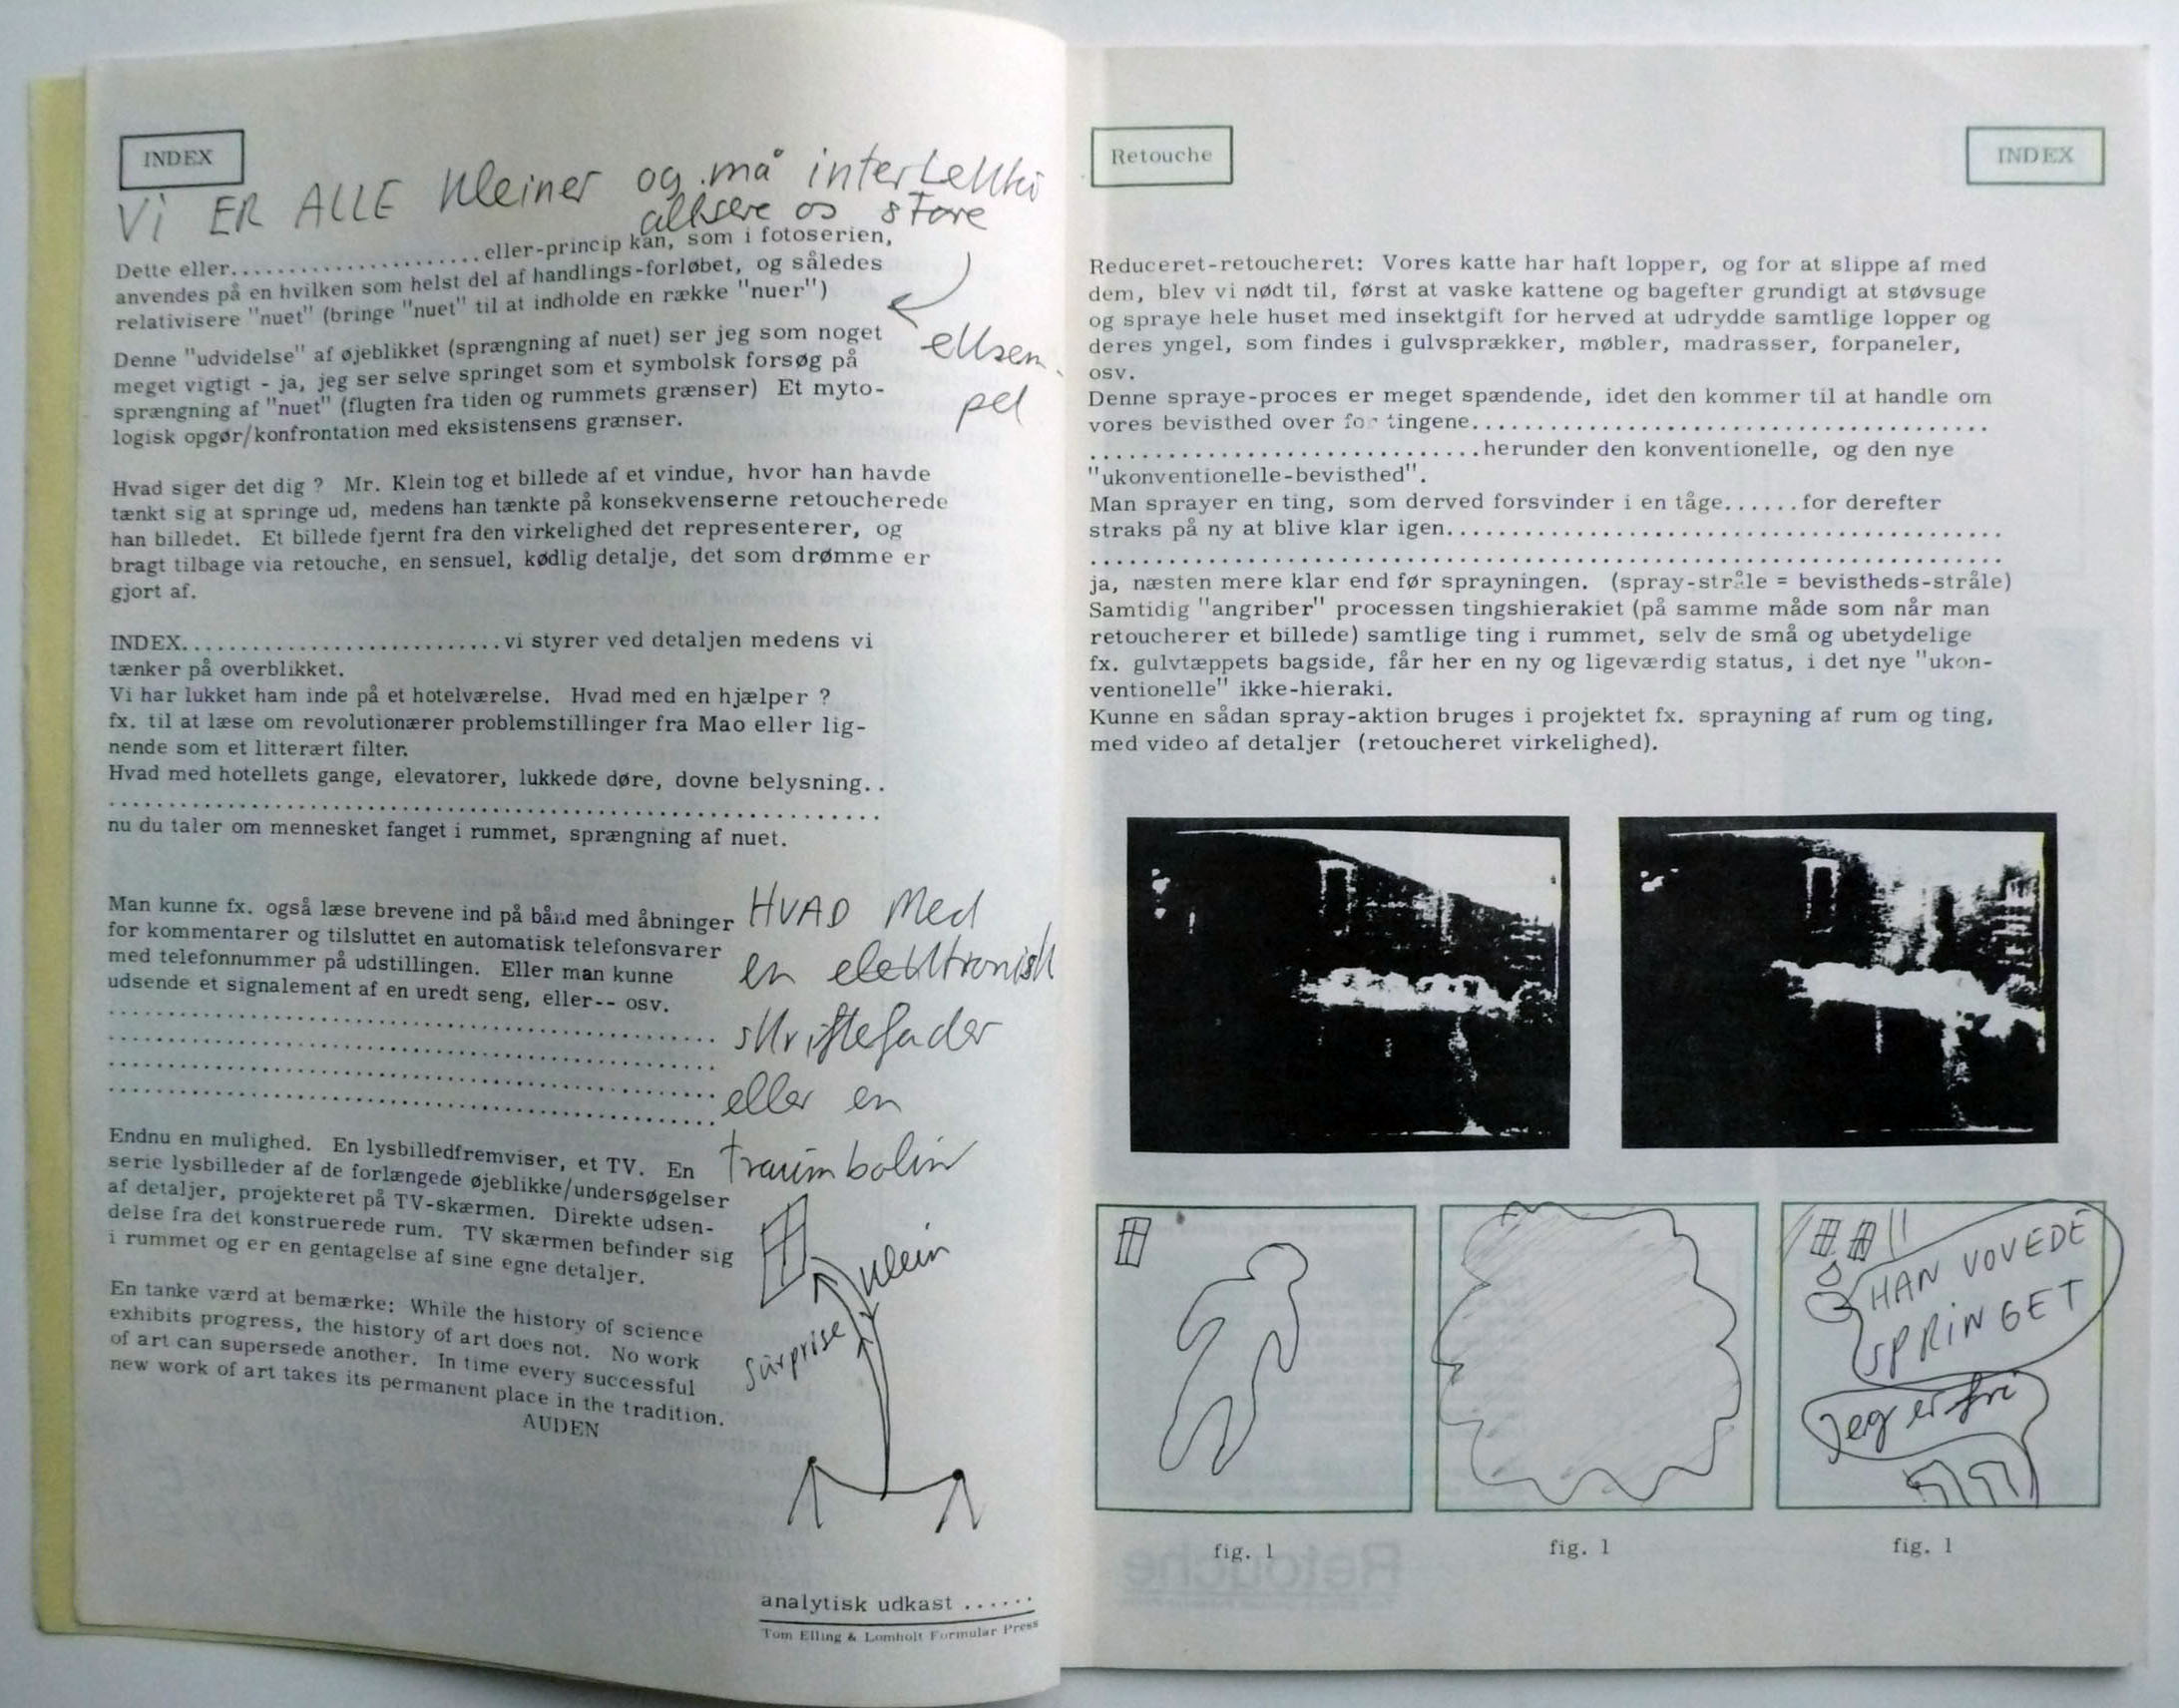 INDEX
VI ER ALLE Kleiner og må intellektu
alisere os store
Dette eller......................eller-princip kan, som i fotoserien,
anvendes på en hvilken som helst del af handlings-forløbet, og således
relativisere "nuet" (bringe "nuet" til at indholde en række "nuer")
Denne "udvidelse" af øjeblikket (sprængning af nuet) ser jeg som noget
meget vigtigt - ja, jeg ser selve springet som et symbolsk forsøg på
sprængning af "nuet" (flugten fra tiden og rummets grænser) Et myto-
logisk opgør/konfrontation med eksistensens grænser.
eksem
pel
Hvad siger det dig ? Mr. Klein tog et billede af et vindue, hvor han havde
tænkt sig at springe ud, medens han tænkte på konsekvenserne retoucherede
han billedet. Et billede fjernt fra den virkelighed det representerer, og
bragt tilbage via retouche, en sensuel, kødlig detalje, det som drømme er
gjort af.
INDEX...........................vi styrer ved detaljen medens vi
tænker på overblikket.
Vi har lukket ham inde på et hotelværelse. Hvad med en hjælper ?
fx. til at læse om revolutionærer problemstillinger fra Mao eller lig-
nende som et litterært filter.
Hvad med hotellets gange, elevatorer, lukkede døre, dovne belysning..
..................................................................
nu du taler om mennesket fanget i rummet, sprængning af nuet.
Man kunne fx. også læse brevene ind på bånd med åbninger
for kommentarer og tilsluttet en automatisk telefonsvarer
med telefonnummer på udstillingen. Eller man kunne
udsende et signalement af en uredt seng, eller-- osv.
....................................................
....................................................
....................................................
....................................................
HVAD Med
en elektronisk
skriftefader
eller en
traumbolin
Endnu en mulighed. En lysbilledfremviser, et TV. En
serie lysbilleder af de forlængede øjeblikke/undersøgelser
af detaljer, projekteret på TV-skærmen. Direkte udsen-
delse fra det konstruerede rum. TV skærmen befinder sig
i rummet og er en gentagelse af sine egne detaljer.
Klein
surprise
En tanke værd at bemærke: While the history of science
exhibits progress, the history of art does not. No work
of art can supersede another. In time every successful
new work of art takes its permanent place in the tradition.
AUDEN
analytisk udkast ......
Tom Elling & Lomholt Formular Press
Retouche
INDEX
Reduceret-retoucheret: Vores katte har haft lopper, og for at slippe af med
dem, blev vi nødt til, først at vaske kattene og bagefter grundigt at støvsuge
og spraye hele huset med insektgift for herved at udrydde samtlige lopper og
deres yngel, som findes i gulvsprækker, møbler, madrasser, forpaneler,
osv.
Denne spraye-proces er meget spændende, idet den kommer til at handle om
vores bevisthed over for tingene.....................................
.................................herunder den konventionelle, og den nye
"ukonventionelle-bevisthed".
Man sprayer en ting, som derved forsvinder i en tåge......for derefter
straks på ny at blive klar igen.......................................
......................................................................
ja, næsten mere klar end før sprayningen. (spray-stråle = bevistheds-stråle)
Samtidig "angriber" processen tingshierakiet (på samme måde som når man
retoucherer et billede) samtlige ting i rummet, selv de små og ubetydelige
fx. gulvtæppets bagside, får her en ny og ligeværdig status, i det nye "ukon-
ventionelle" ikke-hieraki.
Kunne en sådan spray-aktion bruges i projektet fx. sprayning af rum og ting,
med video af detaljer (retoucheret virkelighed).
HAN VOVEDE
SPRINGET
Jeg er fri
fig. 1
fig. 1
fig. 1
Retouche